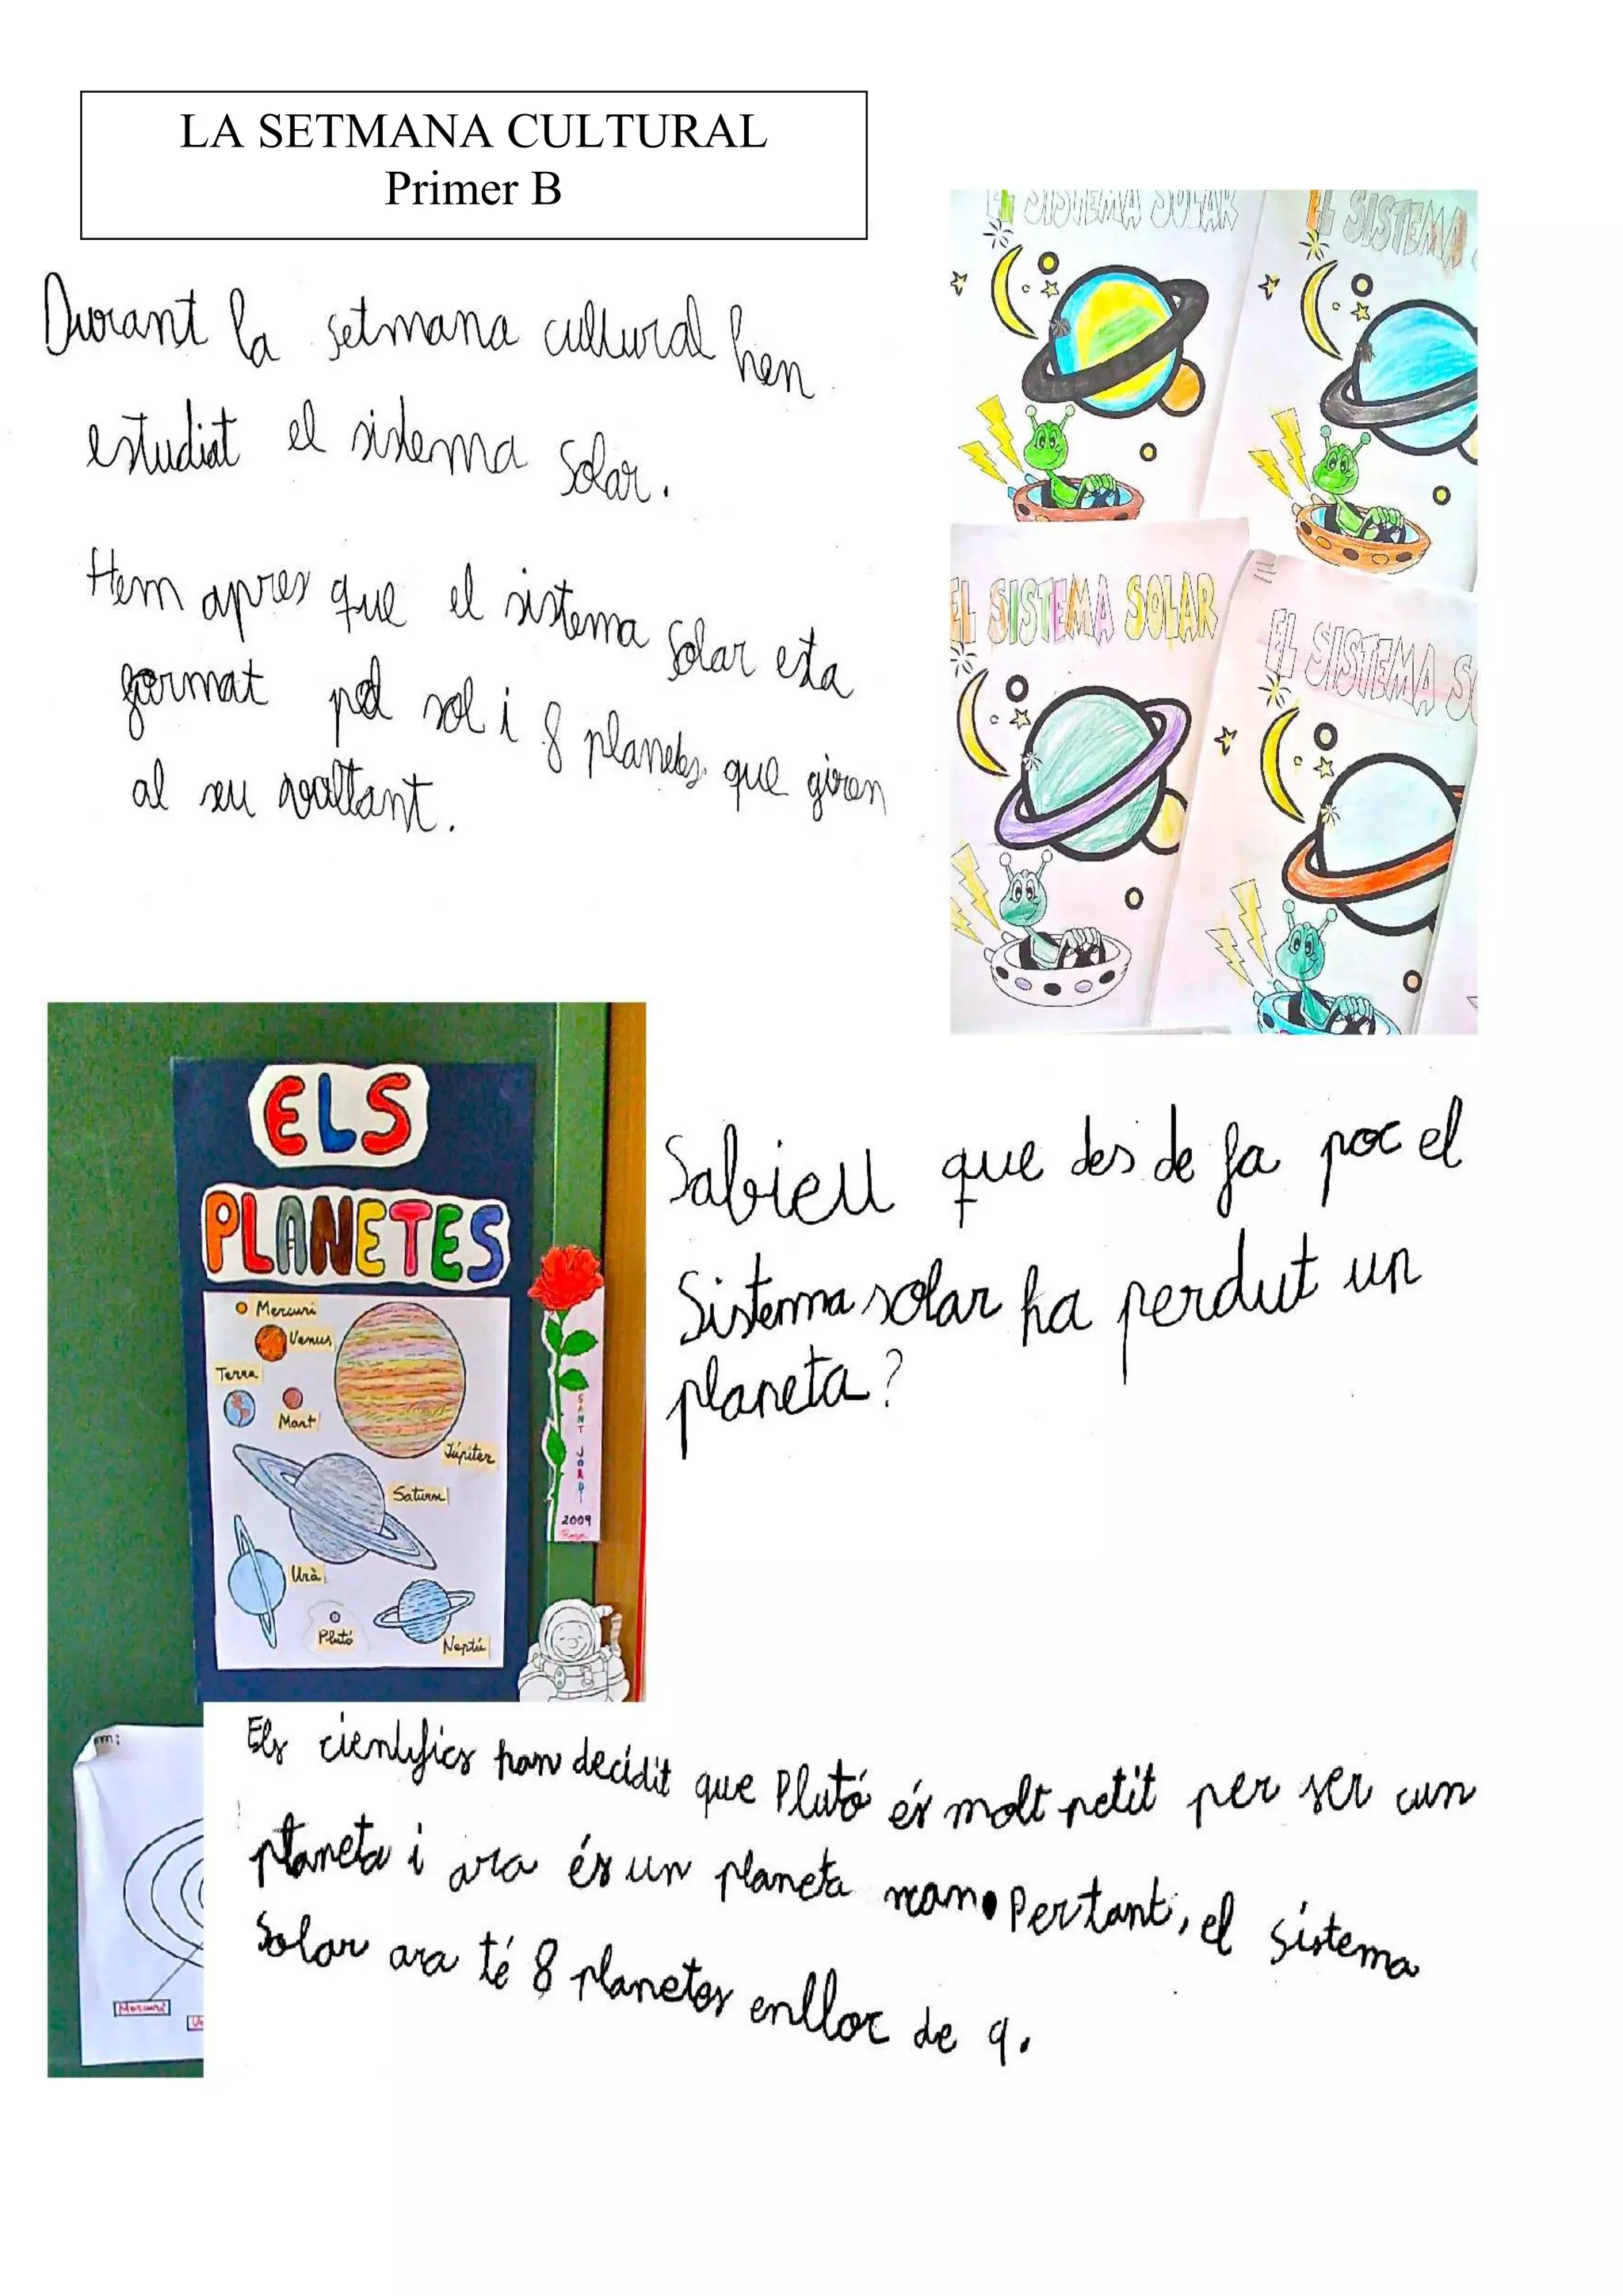 LA SETMANA CULTURAL
Primer B
Durant la setmana cultural hen
estudiat el sistema Solar.
Hem apres que el sistema Solar esta
format pel sol i 8 planetes que giren
al seu voltant.
EL SISTEMA SOLAR
EL SISTEMA
EL SISTEMA SOLAR
EL SISTEMA SO
ELS
PLANETES
Mercuri
Venus
Terra
Mart
Júpiter
Saturn
Urà
Plutó
Neptú
SANT JORDI
2009
Sabieu que des de fa poc el
Sistema solar ha perdut un
planeta?
em:
Mercuri
Ve
Els cientifics han decidit que Plutó és molt petit per ser un
planeta i ara és un planeta nan. Per tant, el sistema
Solar ara té 8 planetes enlloc de 9.